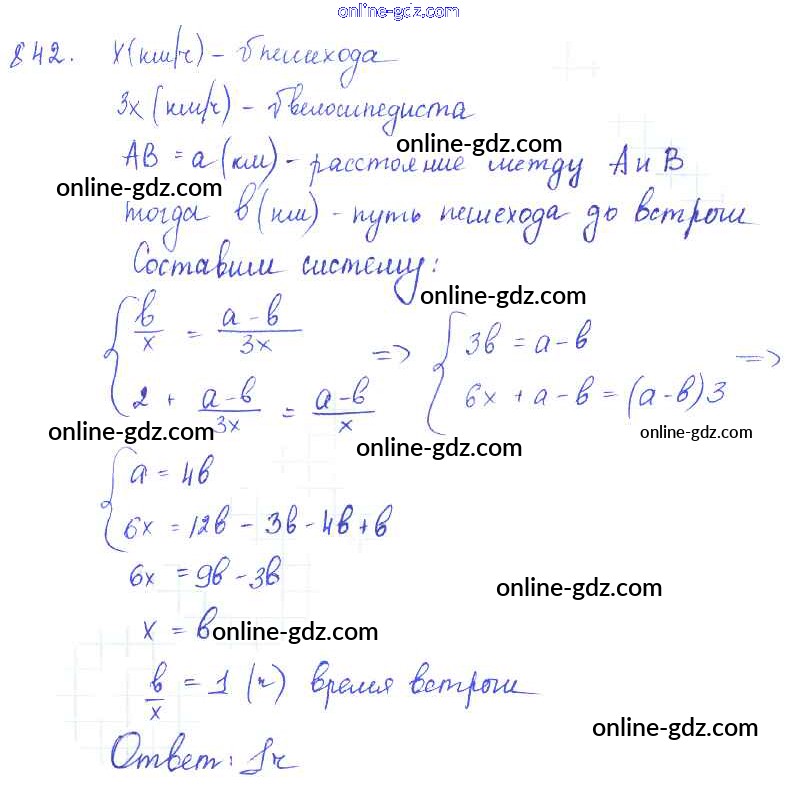 online-gdz.com
842. x(км/ч) - υ пешехода
3x (км/ч) - υ велосипедиста
online-gdz.com
AB = a (км) - расстояние между A и B
online-gdz.com
тогда b (км) - путь пешехода до встречи
Составим систему:
online-gdz.com
{ b/x = (a-b)/3x => { 3b = a-b
2 + (a-b)/3x = (a-b)/x   6x + a-b = (a-b)3 =>
online-gdz.com online-gdz.com online-gdz.com
{ a = 4b
6x = 12b - 3b - 4b + b
6x = 9b - 3b
online-gdz.com
x = b online-gdz.com
b/x = 1 (ч) время встречи
online-gdz.com
Ответ: 1ч